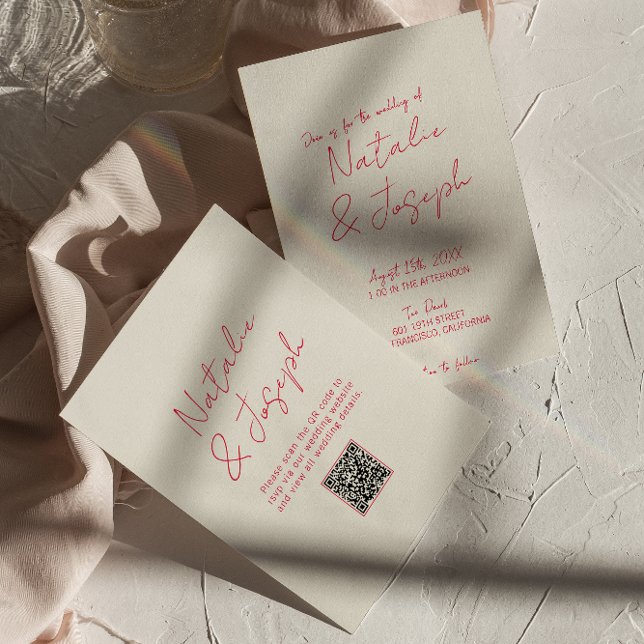 Join us for the wedding of
Natalie
& Joseph
August 15th, 20XX
1:00 IN THE AFTERNOON
The
601 19TH STREET
FRANCISCO, CALIFORNIA
to follow
Natalie
& Joseph
Please scan the QR code to
rsvp via our wedding website
and view all wedding details.